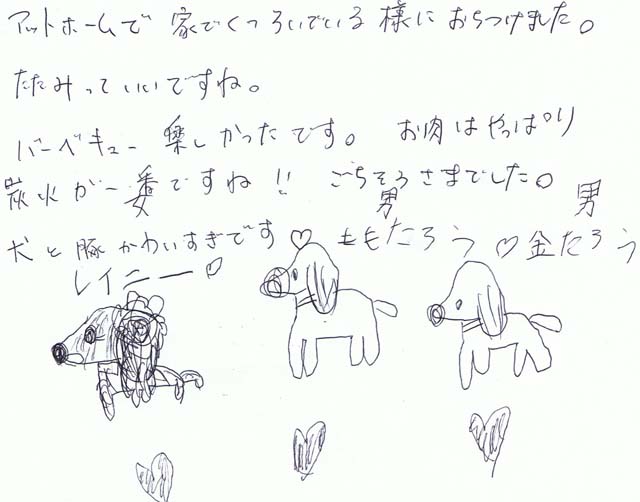 アットホームで 家でくつろいでいる様におちつけました。
たたみっていいですね。
バーベキュー 楽しかったです。 お肉はやっぱり
炭火が一番ですね!! ごちそうさまでした。
犬と豚かわいすぎです♡ ももたろう ♡ 金たろう
女 男 男
レイニー♡